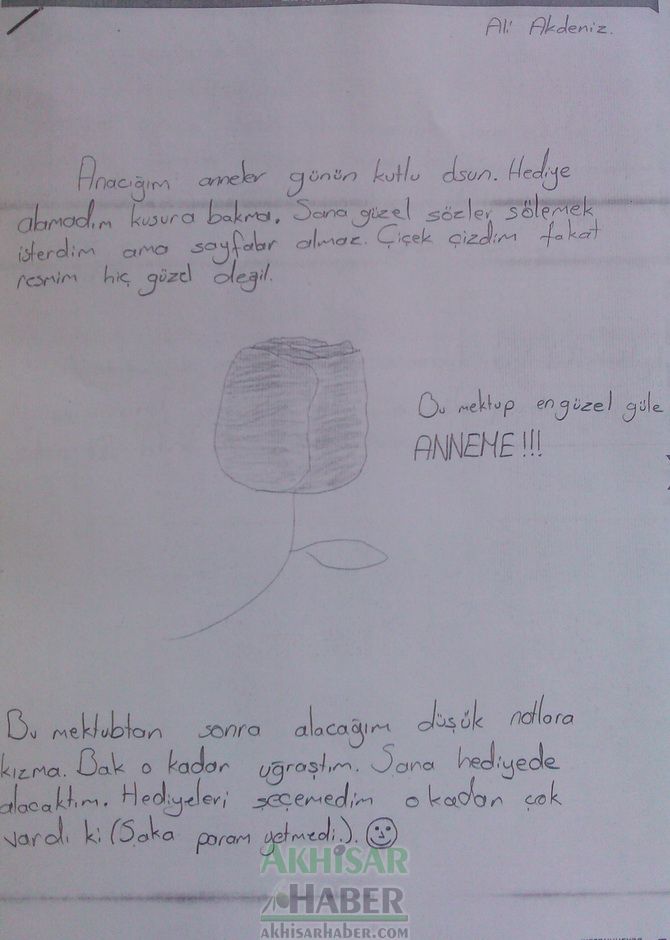 Ali Akdeniz.
Anacığım anneler günün kutlu olsun. Hediye
alamadım kusura bakma. Sana güzel sözler sölemek
isterdim ama sayfalar almaz. Çiçek çizdim fakat
resmim hiç güzel değil.
Bu mektup en güzel güle
ANNEME!!!
Bu mektubtan sonra alacağım düşük notlara
kızma. Bak o kadar uğraştım. Sana hediyede
alacaktım. Hediyeleri seçemedim o kadar çok
vardı ki (Şaka param yetmedi.).
AKHİSAR
HABER
akhisarhaber.com